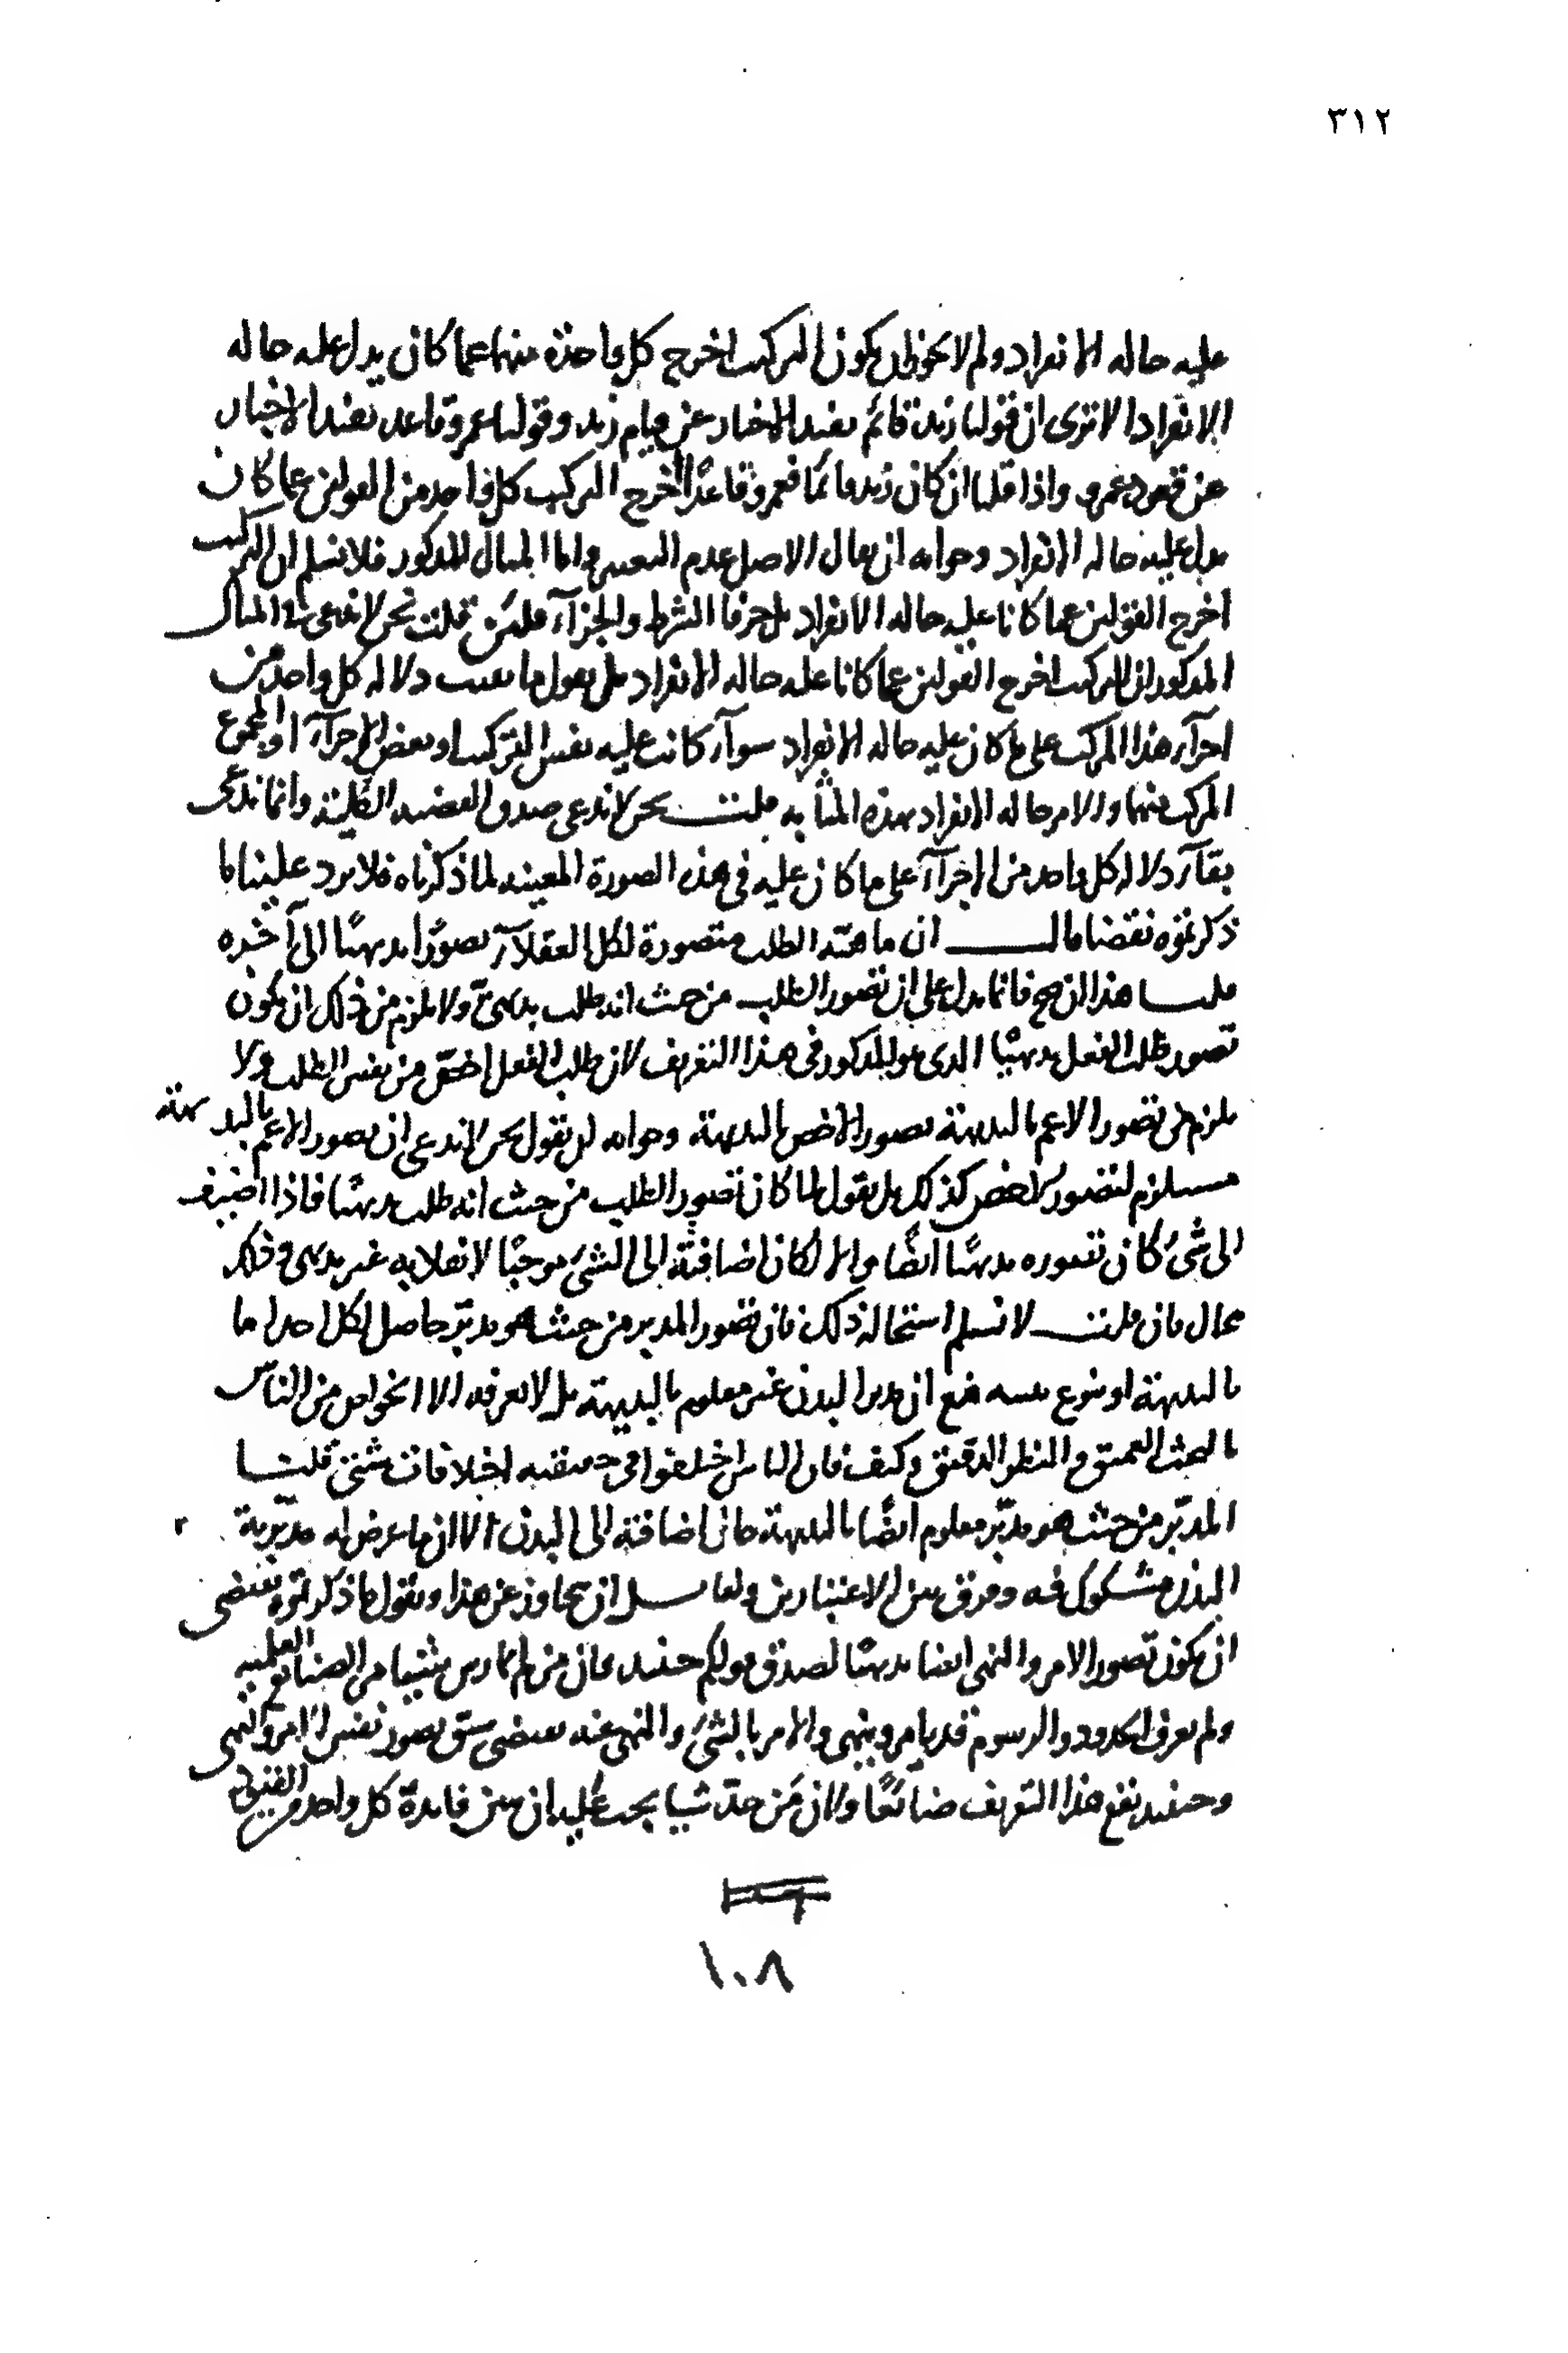 ٣١٢
عليه حاله الانفراد ولم لا يجوز ان يكون التركيب اخرج كل واحدة منهما عما كان يدل عليه حاله
الانفراد الا ترى ان قولنا زيد قائم يفيد الاخبار عن قيام زيد وقولنا عمرو قاعد يفيد الاخبار
عن قعود عمرو واذا قلنا ان كان زيد قائمًا فعمرو قاعدًا اخرج التركيب كل واحد من القولين عما كان
يدل عليه حاله الانفراد وجوابه ان يقال الاصل عدم التغيير واما المثال المذكور فلا نسلم ان التركيب
اخرج القولين عما كانا عليه حاله الانفراد بل حرفا الشرط والجزآء فلئن قلت نحن لا ندعى في المثال
المذكور ان التركيب اخرج القولين عما كانا عليه حاله الانفراد بل نقول ما بقيت دلاله كل واحد من
اجزآء هذا المركب على ما كان عليه حاله الانفراد سوآء كانت عليه نفس التركيب او بعض الاجزآء او المجموع
المركب منهما والامر حاله الانفراد بهذه المثابه قلت نحن لا ندعى صدق القضيه الكلية وانما ندعى
بقآء دلاله كل واحد من الاجزآء على ما كان عليه في هذه الصورة المعينه لما ذكرناه فلا يرد علينا ما
ذكرتموه نقضا قال ان ماهيّه الطلب متصورة لكل العقلآء تصوّرا بديهيًا الى آخره
قلنا هذا ان صح فانما يدل على ان تصور الطلب من حيث انه طلب بديهىّ ولا يلزم من ذلك ان يكون
تصور طلب الفعل بديهيًا الذى هو المذكور في هذا التعريف لان طلب الفعل اخصّ من نفس الطلب ولا
يلزم من تصور الاعم بالبديهة تصور الاخص بالبديهة وجوابه ان نقول نحن لا ندعى ان تصور الاعم بالبديهة
مستلزم لتصور الاخص كذلك بل نقول لما كان تصور الطلب من حيث انه طلب بديهيًا فاذا اضيف
الى شئ كان تصوره بديهيًا ايضًا والا لكان اضافته الى الشئ موجبًا لانقلابه غير بديهى وذلك
محال فان قلت لا نسلم استحالة ذلك فان تصور المدبر من حيث هو مدبّر حاصل لكل احد اما
بالبديهة او بنوع تنبيه مع ان مدبر البدن غير معلوم بالبديهة بل لا يعرفه الا الخواص من الناس
بالبحث العميق والنظر الدقيق وكيف فان الناس اختلفوا في حقيقته اختلافات شتى قلنا
المدبّر من حيث هو مدبّر معلوم ايضًا بالبديهة حال اضافته الى البدن الا ان ما عرض له مدبّرية
البدن مشكوك فيه وفرق بين الاعتبارين ولقائل ان يتجاوز عن هذا ويقول ما ذكرتموه يقتضى
ان يكون تصور الامر والنهى ايضا بديهيًا لصدق قولكم حينئذ فان من لم يمارس شيئا من الصنايع العلميه
ولم يعرف الحدود والرسوم قد يامر وينهى والامر بالشئ والنهى عنه يقتضى سبق تصور نفس الامر والنهى
وحينئذ يقع هذا التعريف ضائعًا ولان من حدّ شيا يجب عليه ان يبين فايدة كل واحد من القيود
١٠٨